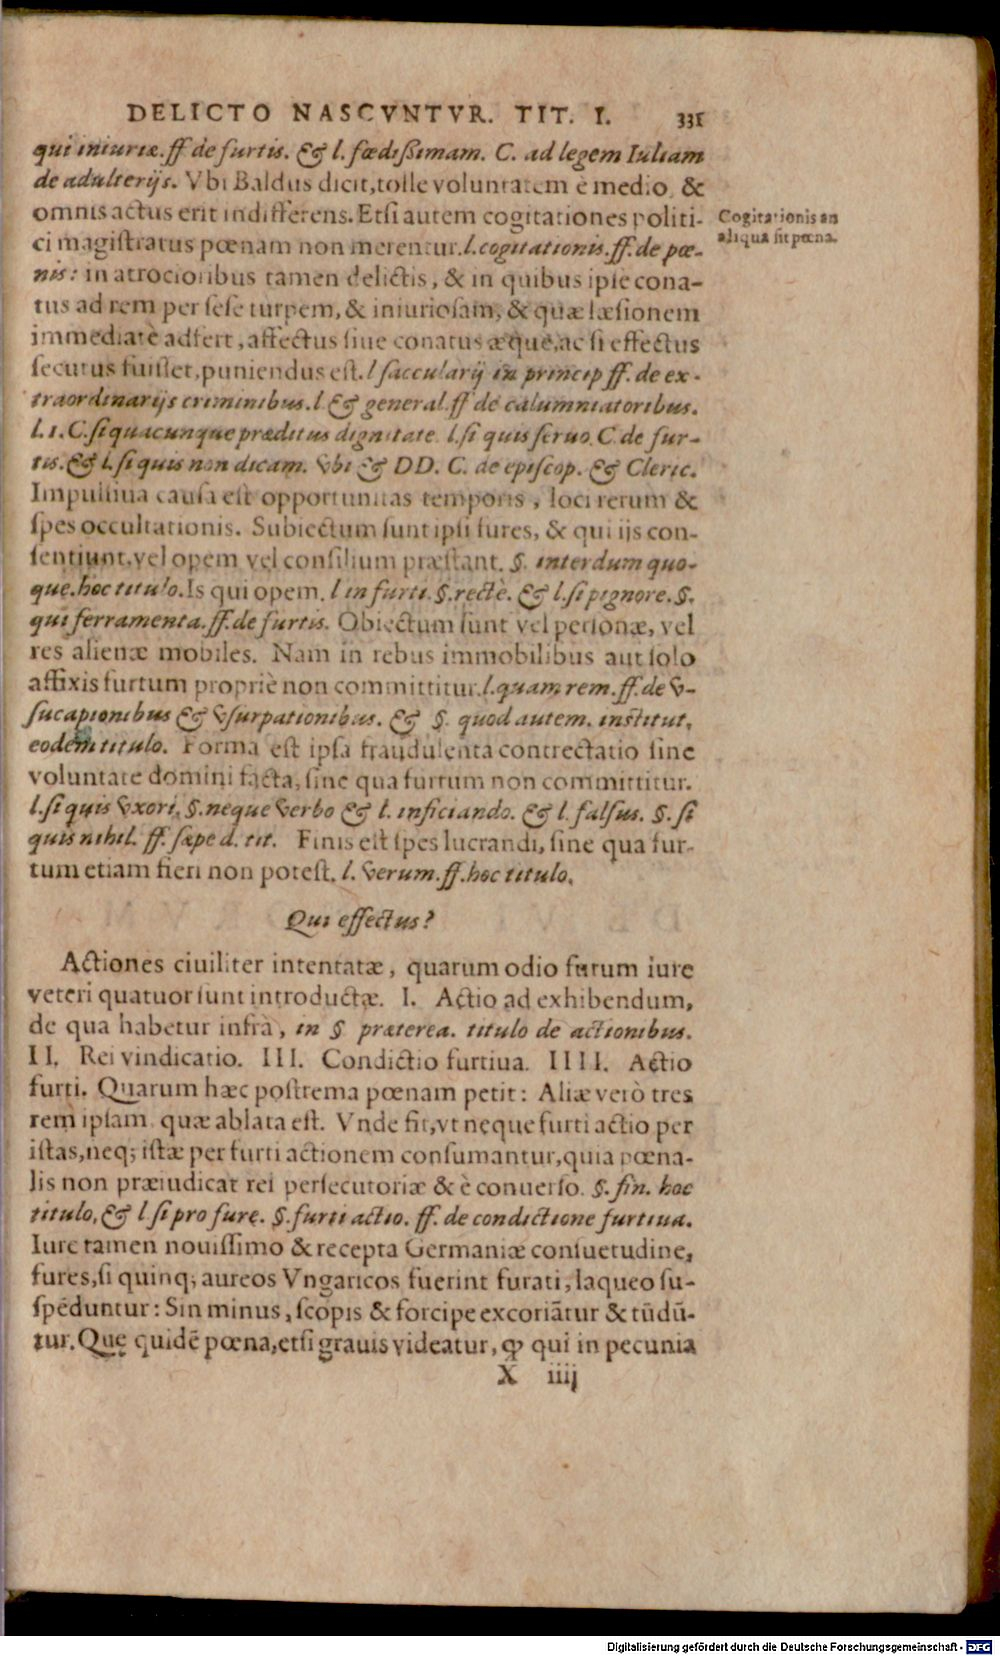 DELICTO NASCVNTVR. TIT. I. 331
qui iniuriæ. ff de furtis. & l. fœdißimam. C. ad legem Iuliam
de adulterijs. Vbi Baldus dicit, tolle voluntatem è medio, &
omnis actus erit indifferens. Etsi autem cogitationes politi-
Cogitationis an
aliqua sit pœna.
ci magistratus pœnam non merentur. l. cogitationis. ff. de pœ-
nis: in atrocioribus tamen delictis, & in quibus ipse cona-
tus ad rem per sese turpem, & iniuriosam, & quæ læsionem
immediatè adfert, affectus siue conatus æquè, ac si effectus
secutus fuisset, puniendus est. l saccularij in princip ff. de ex-
traordinarijs criminibus. l. & general. ff de calumniatoribus.
l. 1. C. si quacunque præditus dignitate. l. si quis seruo. C de fur-
tis. & l. si quis non dicam. vbi & DD. C. de episcop. & Cleric.
Impulsiua causa est opportunitas temporis, loci rerum &
spes occultationis. Subiectum sunt ipsi fures, & qui ijs con-
sentiunt, vel opem vel consilium præstant. §. interdum quo-
que. hoc titulo. Is qui opem. l in furti. §. rectè. & l. si pignore. §.
qui ferramenta. ff. de furtis. Obiectum sunt vel personæ, vel
res alienæ mobiles. Nam in rebus immobilibus aut solo
affixis furtum propriè non committitur. l. quam rem. ff. de v-
sucapionibus & vsurpationibus. & §. quod autem. institut.
eodem titulo. Forma est ipsa fraudulenta contrectatio sine
voluntate domini facta, sine qua furtum non committitur.
l. si quis vxori, §. neque verbo & l. inficiando. & l. falsus. §. si
quis nihil. ff. sæpe d. tit. Finis est spes lucrandi, sine qua fur-
tum etiam fieri non potest. l. verum. ff. hoc titulo.
Qui effectus?
Actiones ciuiliter intentatæ, quarum odio furum iure
veteri quatuor sunt introductæ. I. Actio ad exhibendum,
de qua habetur infrà, in § præterea. titulo de actionibus.
II. Rei vindicatio. III. Condictio furtiua. IIII. Actio
furti. Quarum hæc postrema pœnam petit: Aliæ verò tres
rem ipsam, quæ ablata est. Vnde fit, vt neque furti actio per
istas, neq; istæ per furti actionem consumantur, quia pœna-
lis non præiudicat rei persecutoriæ & è conuerso. §. fin. hoc
titulo, & l si pro fure. §. furti actio. ff. de condictione furtiua.
Iure tamen nouissimo & recepta Germaniæ consuetudine,
fures, si quinq; aureos Vngaricos fuerint furati, laqueo su-
spēduntur: Sin minus, scopis & forcipe excoriātur & tūdū-
tur. Quę quidē pœna, etsi grauis videatur, ꝙ qui in pecunia
X iiij
Digitalisierung gefördert durch die Deutsche Forschungsgemeinschaft - DFG